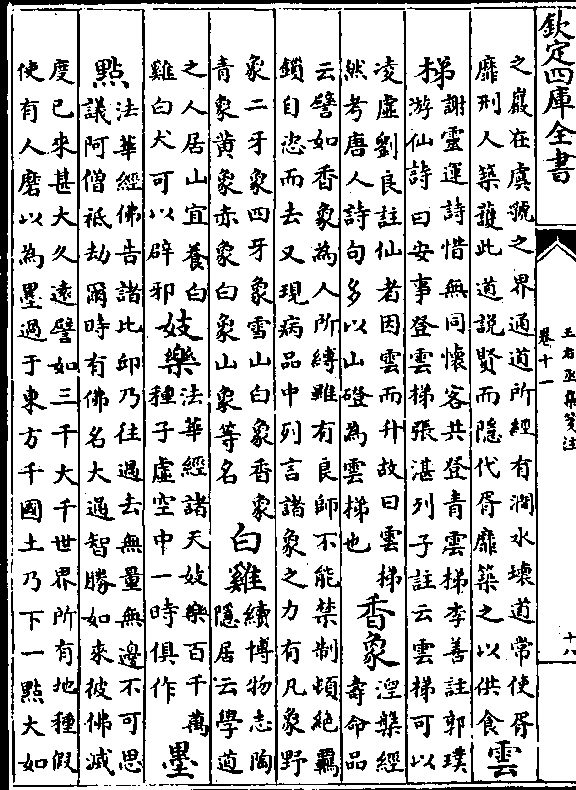 欽定四庫全書
王右丞集箋注
卷十一
十八
之巖在虞虢之界通道所經有澗水壞道常使胥
靡刑人築護此道説賢而隱代胥靡築之以供食
雲
梯
謝靈運詩惜無同懷客共登青雲梯李善註郭璞
游仙詩曰安事登雲梯張湛列子註云雲梯可以
凌虛劉良註仙者因雲而升故曰雲梯
然考唐人詩句多以山磴為雲梯也
香象
涅槃經
壽命品
云譬如香象為人所縛雖有良師不能禁制頓絶羈
鎖自恣而去又現病品中列言諸象之力有凡象野
象二牙象四牙象雪山白象香象
青象黄象赤象白象山象等名
白雞
續博物志陶
隱居云學道
之人居山宜養白
雞白犬可以辟邪
妓樂
法華經諸天妓樂百千萬
種于虛空中一時俱作
墨
點
法華經佛告諸比邱乃往過去無量無邊不可思
議阿僧祗劫爾時有佛名大通智勝如來彼佛滅
度已來甚大久遠譬如三千大千世界所有地種假
使有人磨以為墨過于東方千國土乃下一點大如